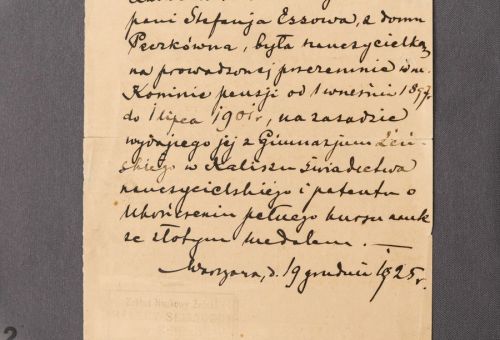 pani Stefanja Eszowa, z domu
Peczkówna, była nauczycielką
na prowadzonej przezemnie w m.
Koninie pensji od 1 wrześniu 1897 r.
do 1 lipca 1901 r., na zasadzie
wydanego jej z Gimnazjum Żeń-
skiego w Kaliszu świadectwa
nauczycielskiego i patentu o
ukończeniu pełnego kursu nauk
ze złotym medalem. —
Warszawa, d. 19 grudnia 1925 r.
2